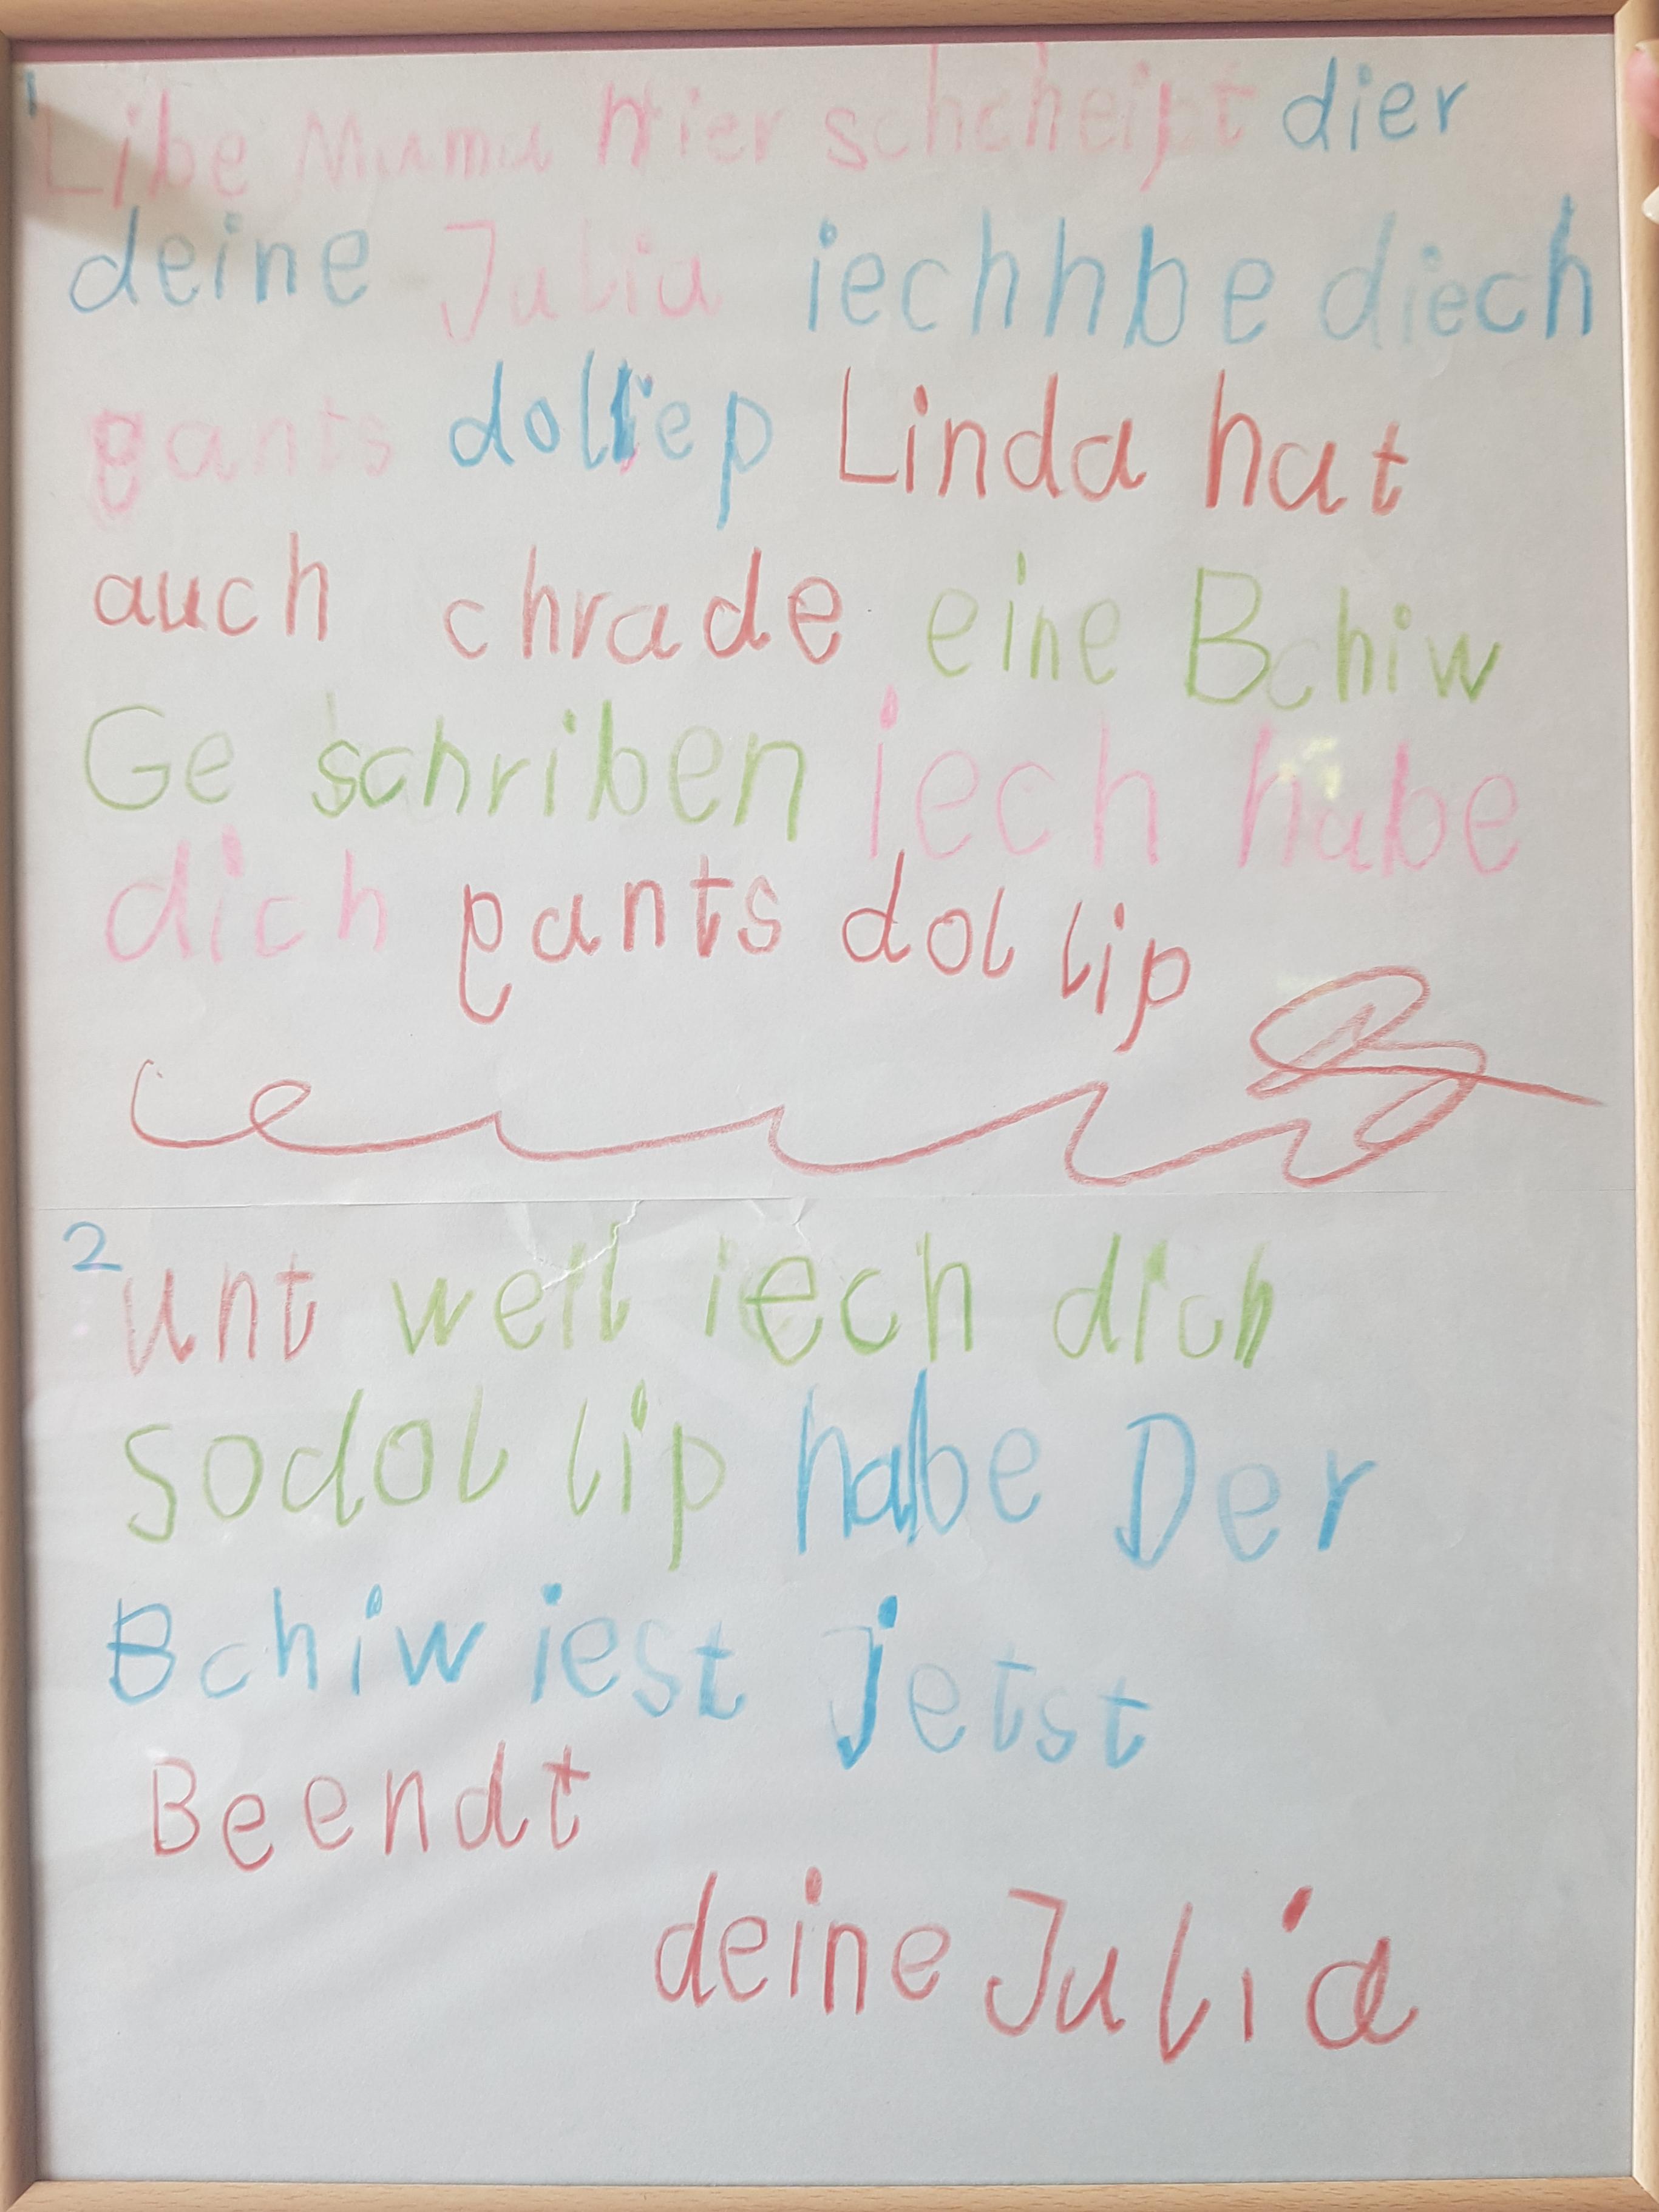 1
Libe Mama hier schcheipt dier
deine Julia iechhbe diech
gants dolliep Linda hat
auch chrade eine Bchiw
Ge schriben iech habe
dich gants dol lip
2
unt weil iech dich
sodol lip habe Der
Bchiw iest jetst
Beendt
deine Julia